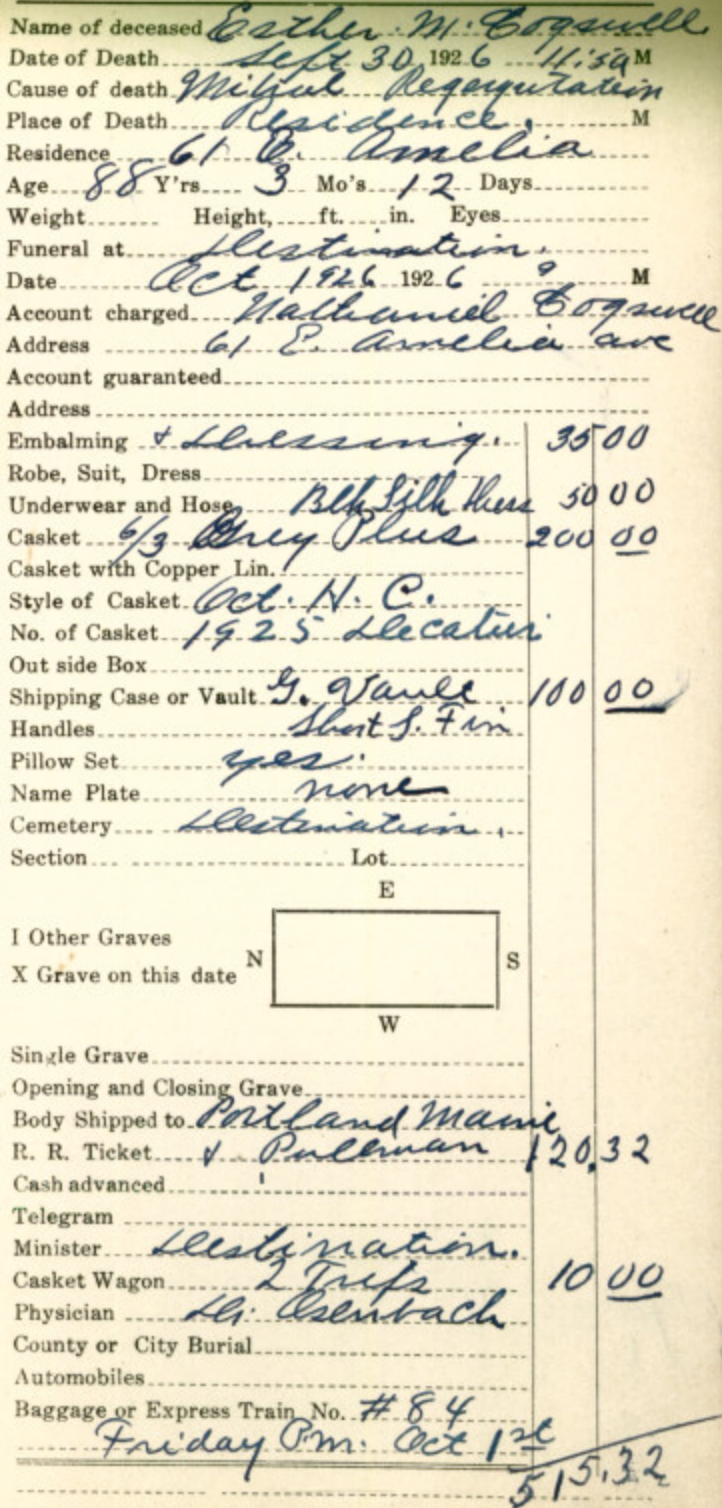 Name of deceased Esther. M. Cogswell
Date of Death Sept 30 1926 11:50 M
Cause of death Mitral Regurgutation
Place of Death Residence. M
Residence 61 E. Amelia
Age 88 Y'rs 3 Mo's 12 Days
Weight Height, ft. in. Eyes
Funeral at Destination.
Date Oct 1926 1926 ? M
Account charged Nathaniel Cogswell
Address 61 E. Amelia ave
Account guaranteed
Address
Embalming & Dressing. 35 00
Robe, Suit, Dress
Underwear and Hose Blk Silk 50 00
Casket 6/3 Grey Plus 200 00
Casket with Copper Lin.
Style of Casket Oct. H. C.
No. of Casket 1925 Decatur
Out side Box
Shipping Case or Vault G. Vault 100 00
Handles Short S. Fin
Pillow Set yes.
Name Plate none
Cemetery Destination.
Section Lot
E
I Other Graves
N S
X Grave on this date
W
Single Grave
Opening and Closing Grave
Body Shipped to Portland Maine
R. R. Ticket & Pullman 120.32
Cash advanced
Telegram
Minister Destination.
Casket Wagon 2 Trips 10 00
Physician Dr. Osenbach
County or City Burial
Automobiles
Baggage or Express Train No. # 84
Friday Pm. Oct 1st
515.32